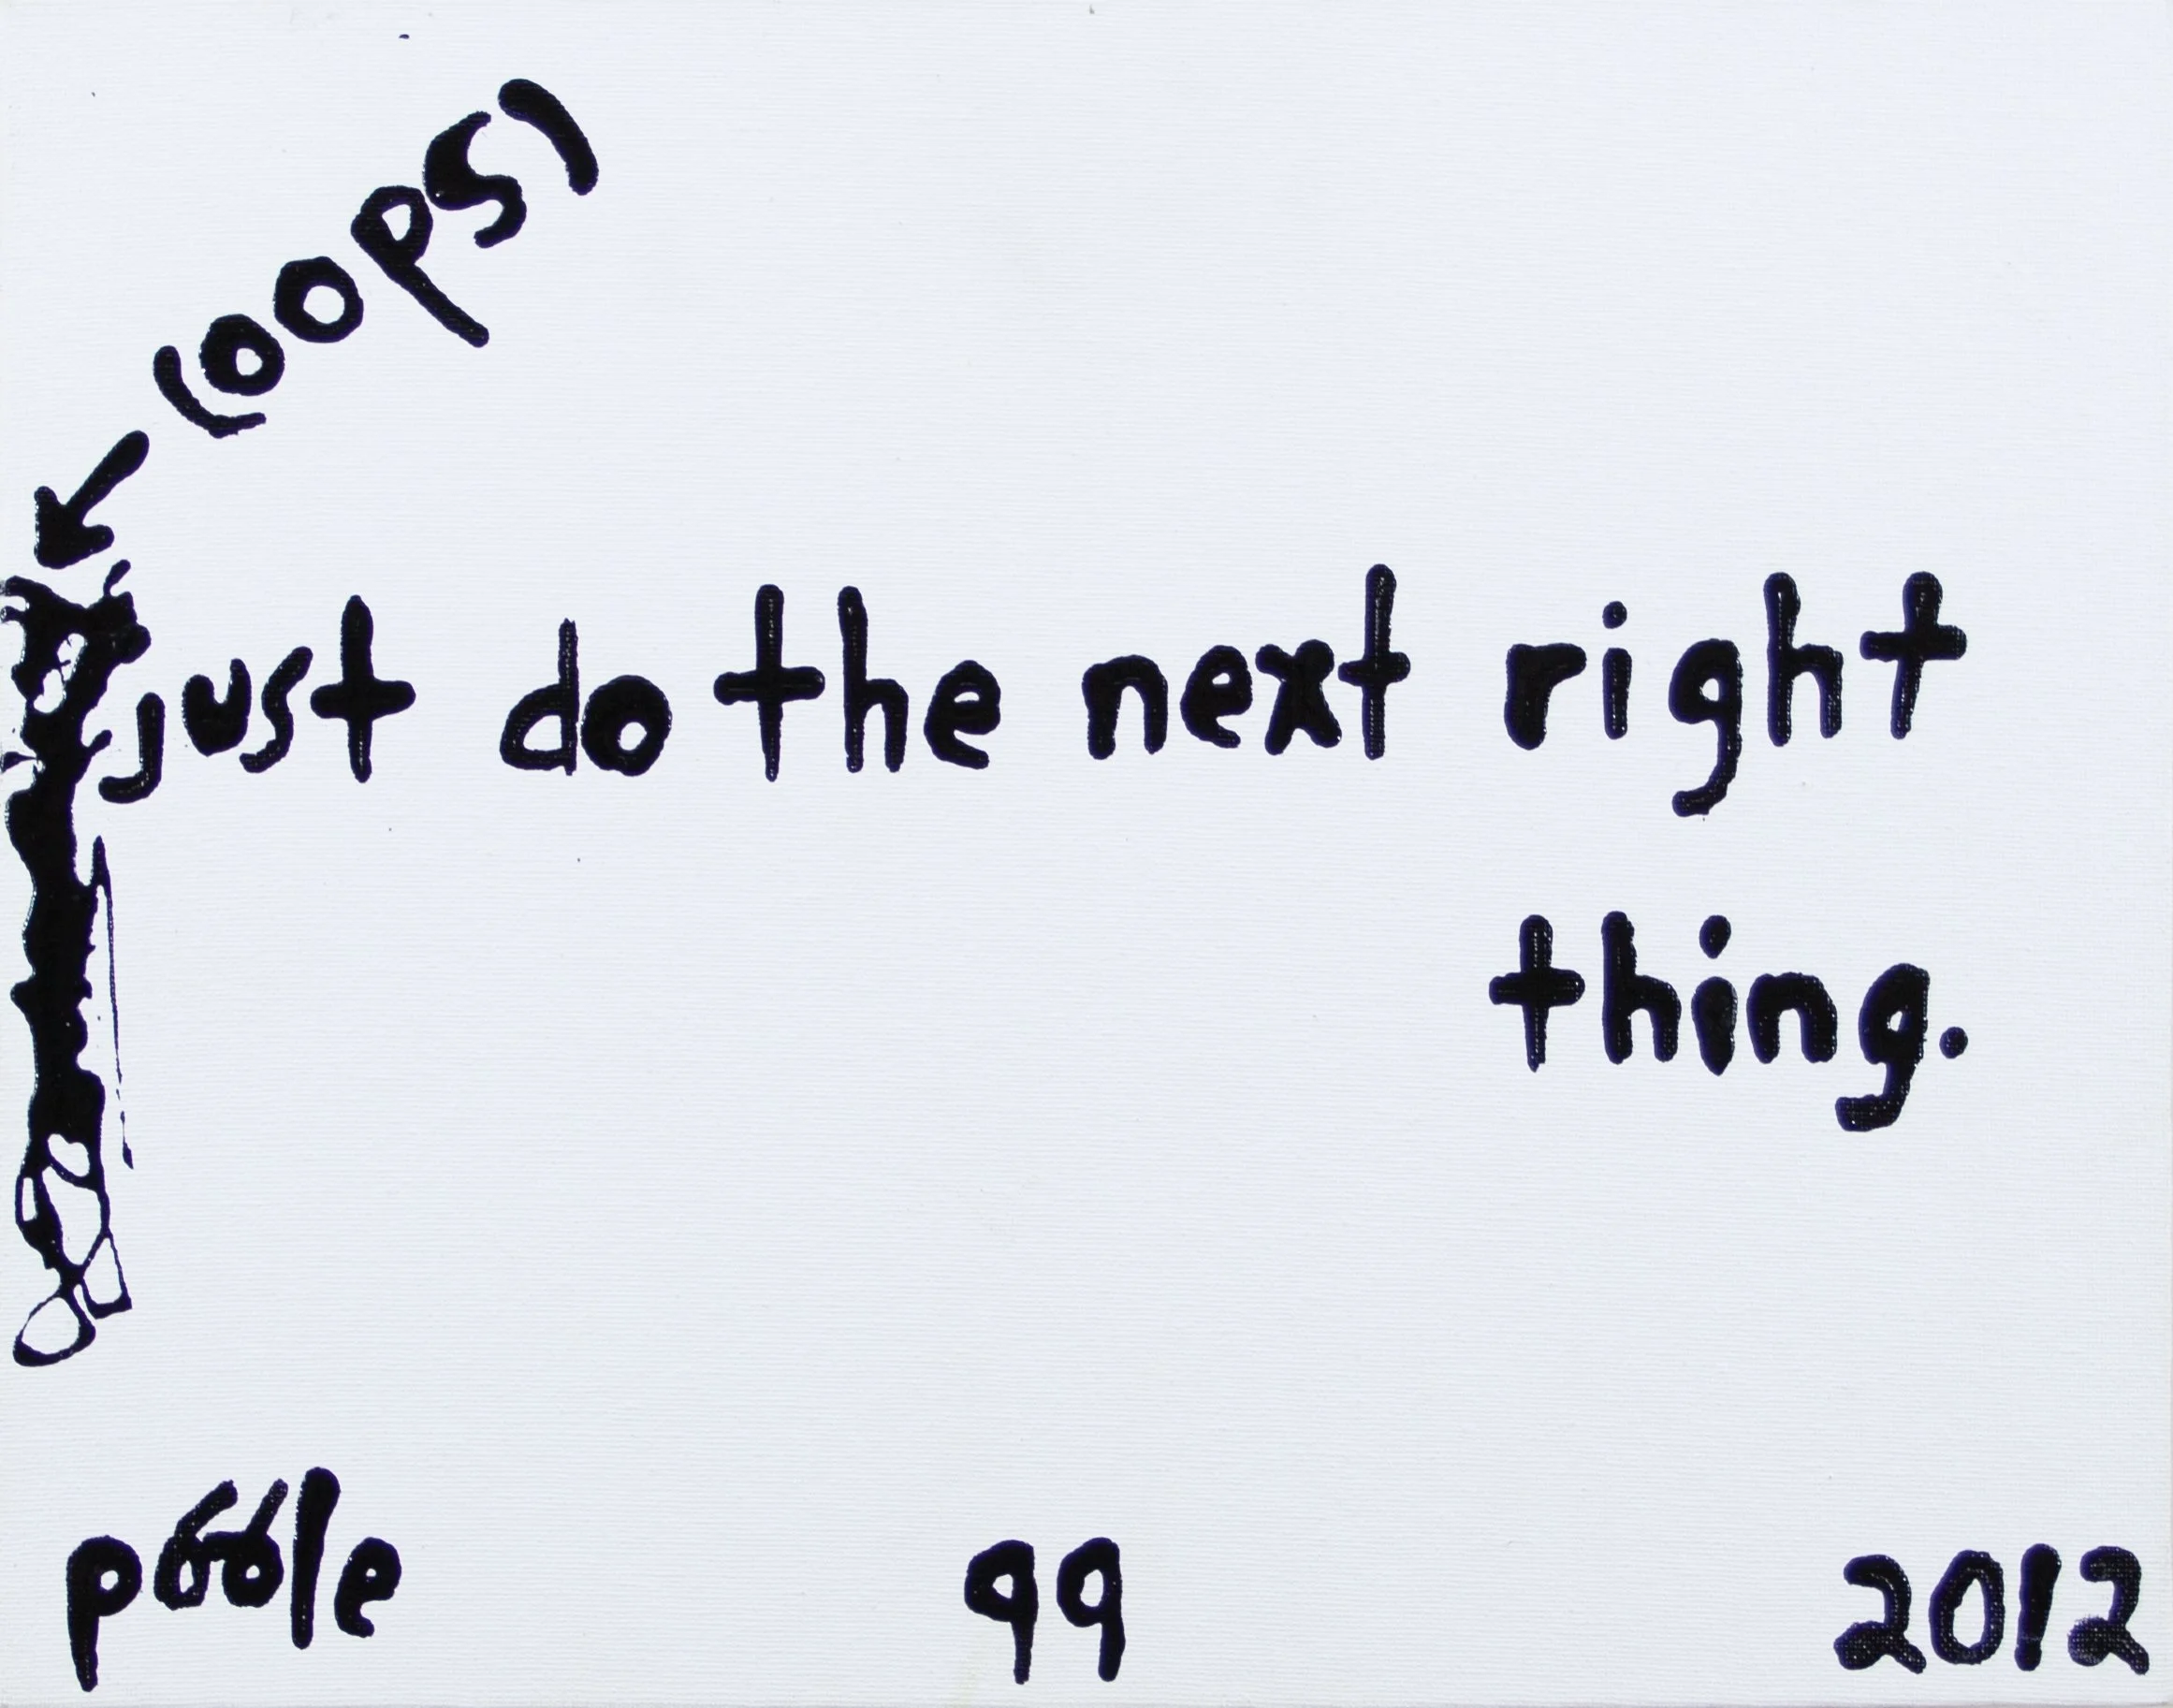 (oops)
just do the next right
thing.
poole 99 2012